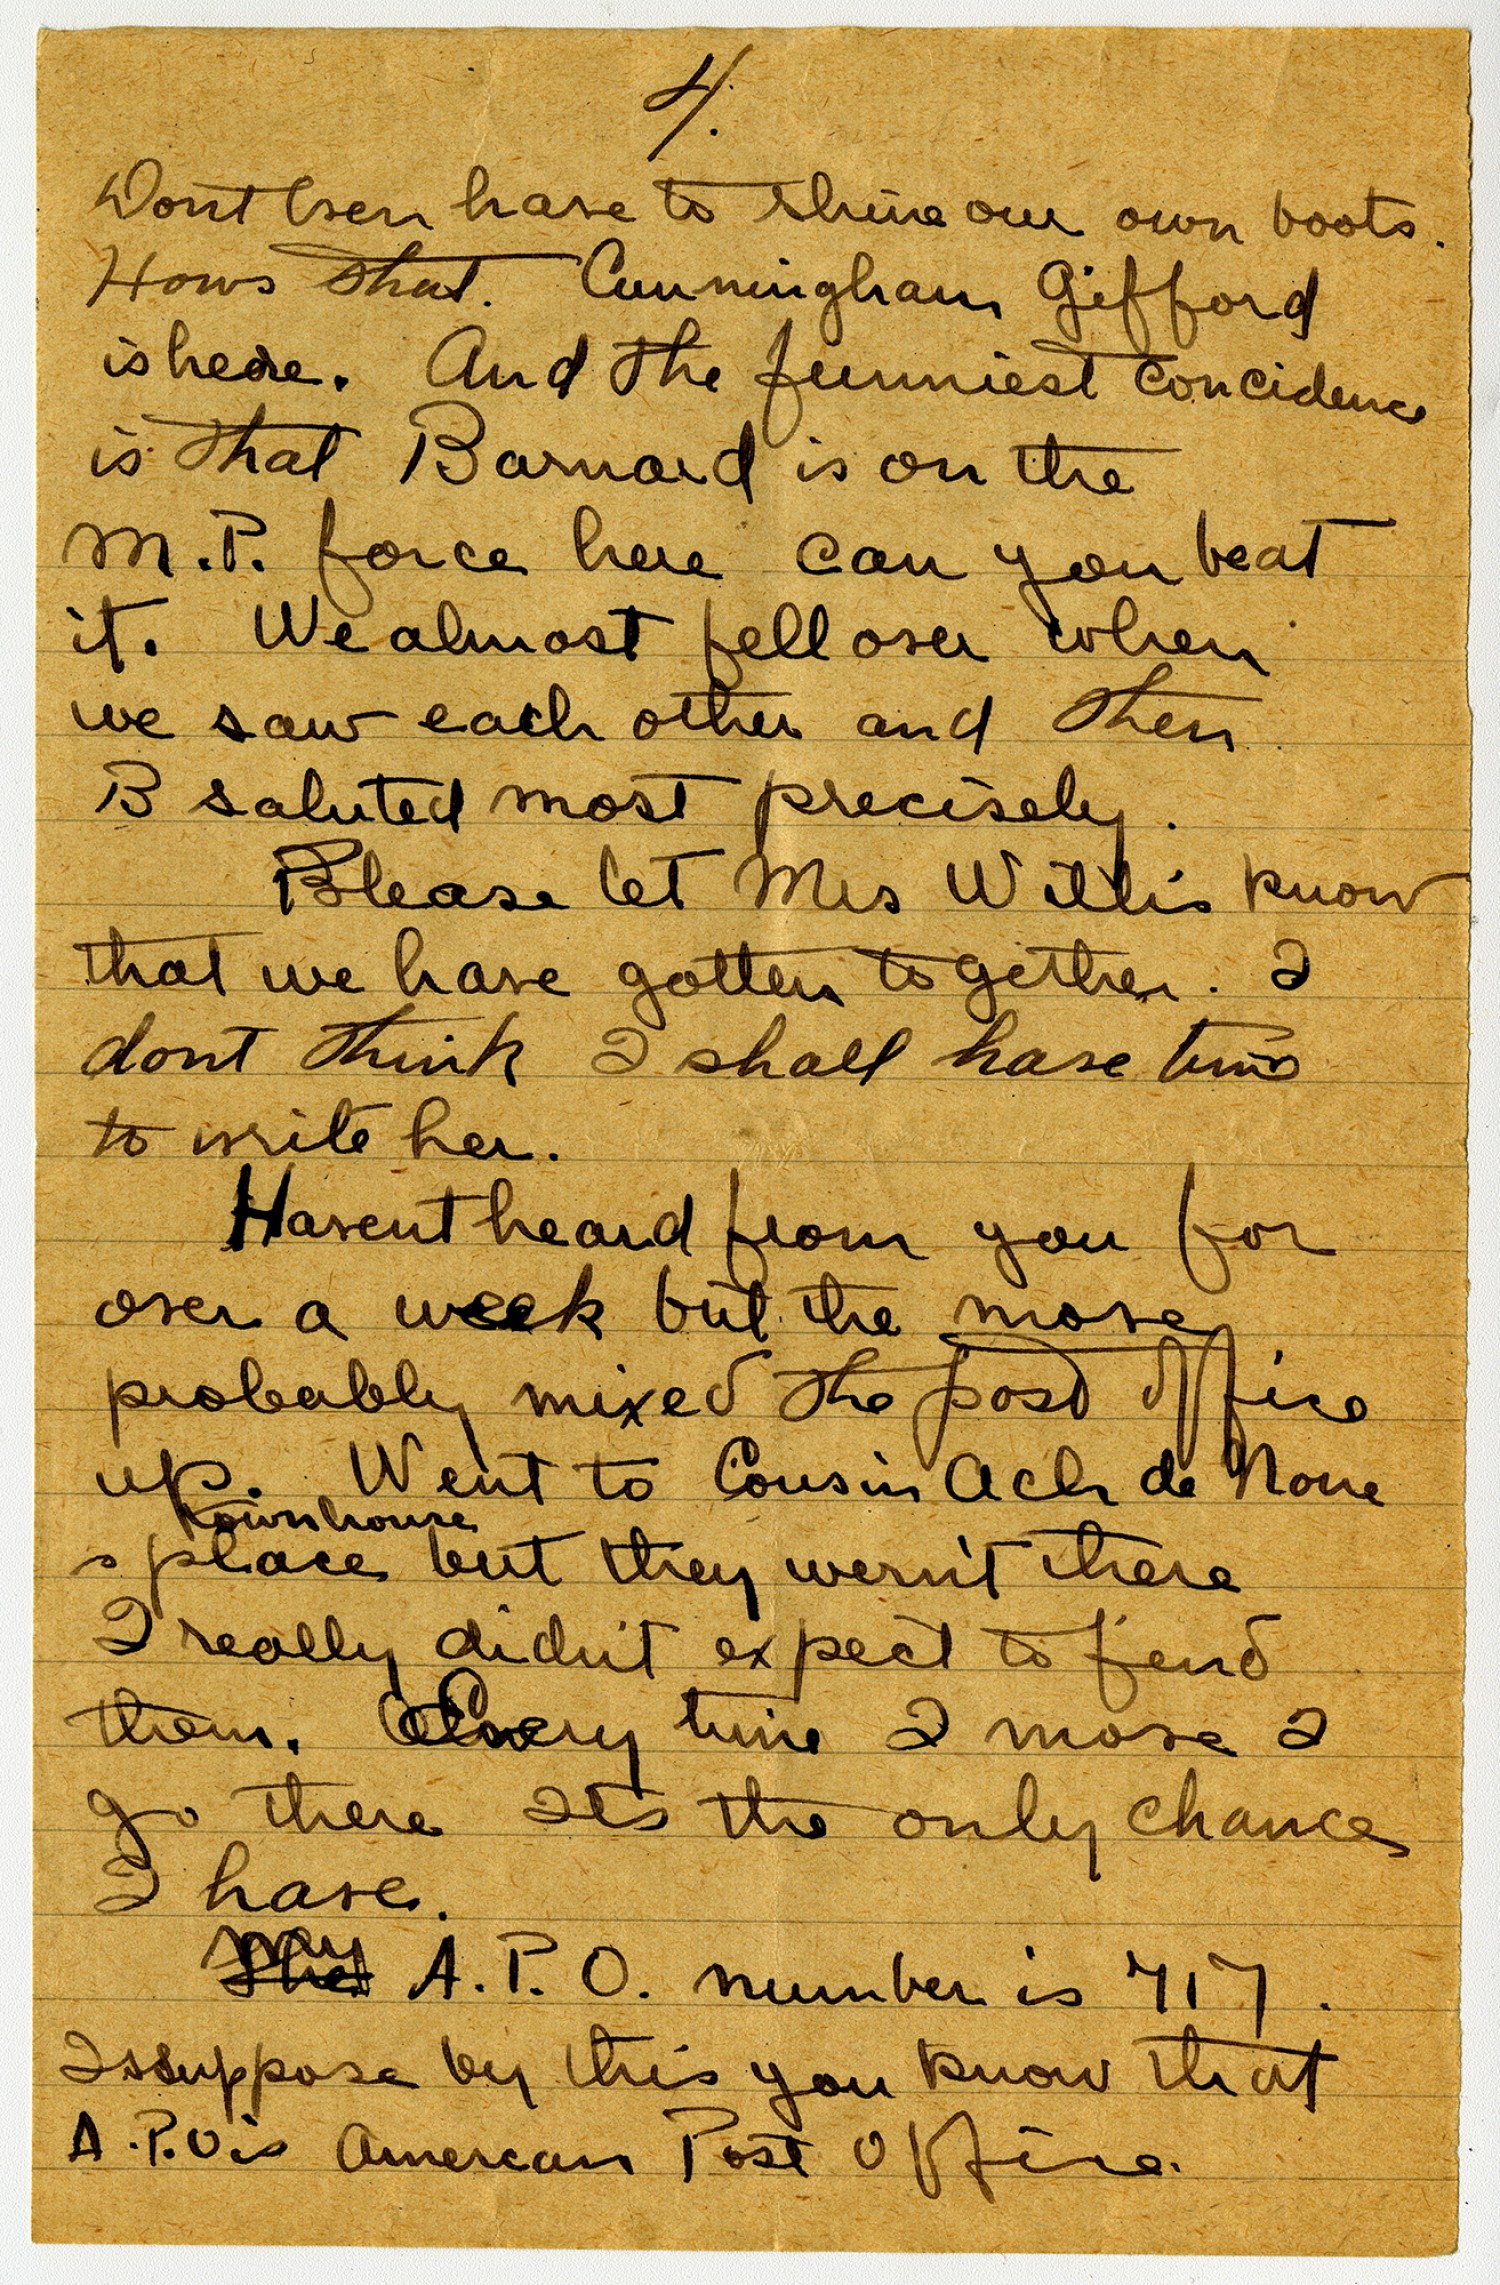 4.
Dont even have to shine our own boots.
Hows that. Cunningham Gifford
is here. And the funniest concidence
is that Barnard is on the
M.P. force here can you beat
it. We almost fell over when
we saw each other and then
B saluted most precisely.
Please let Mrs Willis know
that we have gotten together. I
dont think I shall have time
to write her.
Havent heard from you for
over a week but the move
probably mixed the post office
up. Went to Cousin Ach de None
Townhouse
s place but they wern't there
I really didn't expect to find
them. Every time I move I
go there Its the only chance
I have.
my
The A.P.O. number is 717.
I suppose by this you know that
A.P.O is American Post Office.